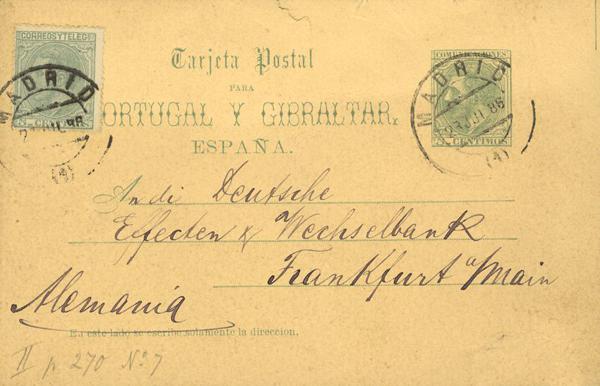 CORREOS Y TELEGS
COMUNICACIONES
Tarjeta Postal
PARA
PORTUGAL Y GIBRALTAR.
ESPAÑA.
MADRID
(4)
5 CENTIMOS
MADRID
(4)
An di Deutsche
Effecten & Wechselbank
Frankfurt a/Main
Alemania
En este lado se escribe solamente la direccion.
II p. 270 No. 7